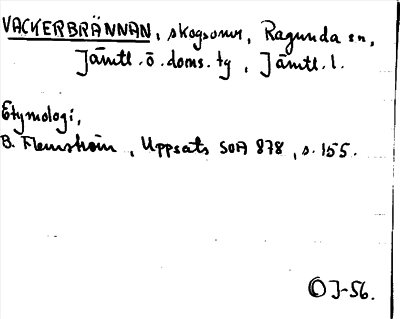 VACKERBRÄNNAN, skogsomr, Ragunda sn,
Jämtl. ö. doms. tg, Jämtl. l.
Etymologi,
B. Flemström, Uppsats SOA 878, s. 155.
OJ-56.